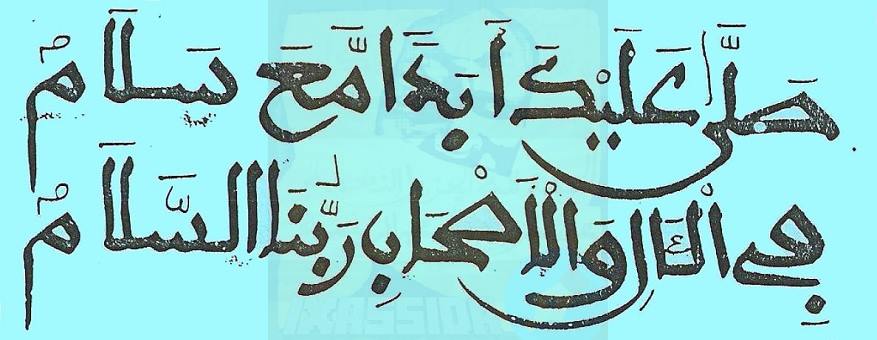 صَلَّى عَلَيْكَ أَبَدًا مَّعَ سَلَامُ
فِي الْآلِ وَالْأَصْحَابِ رَبُّنَا السَّلَامُ